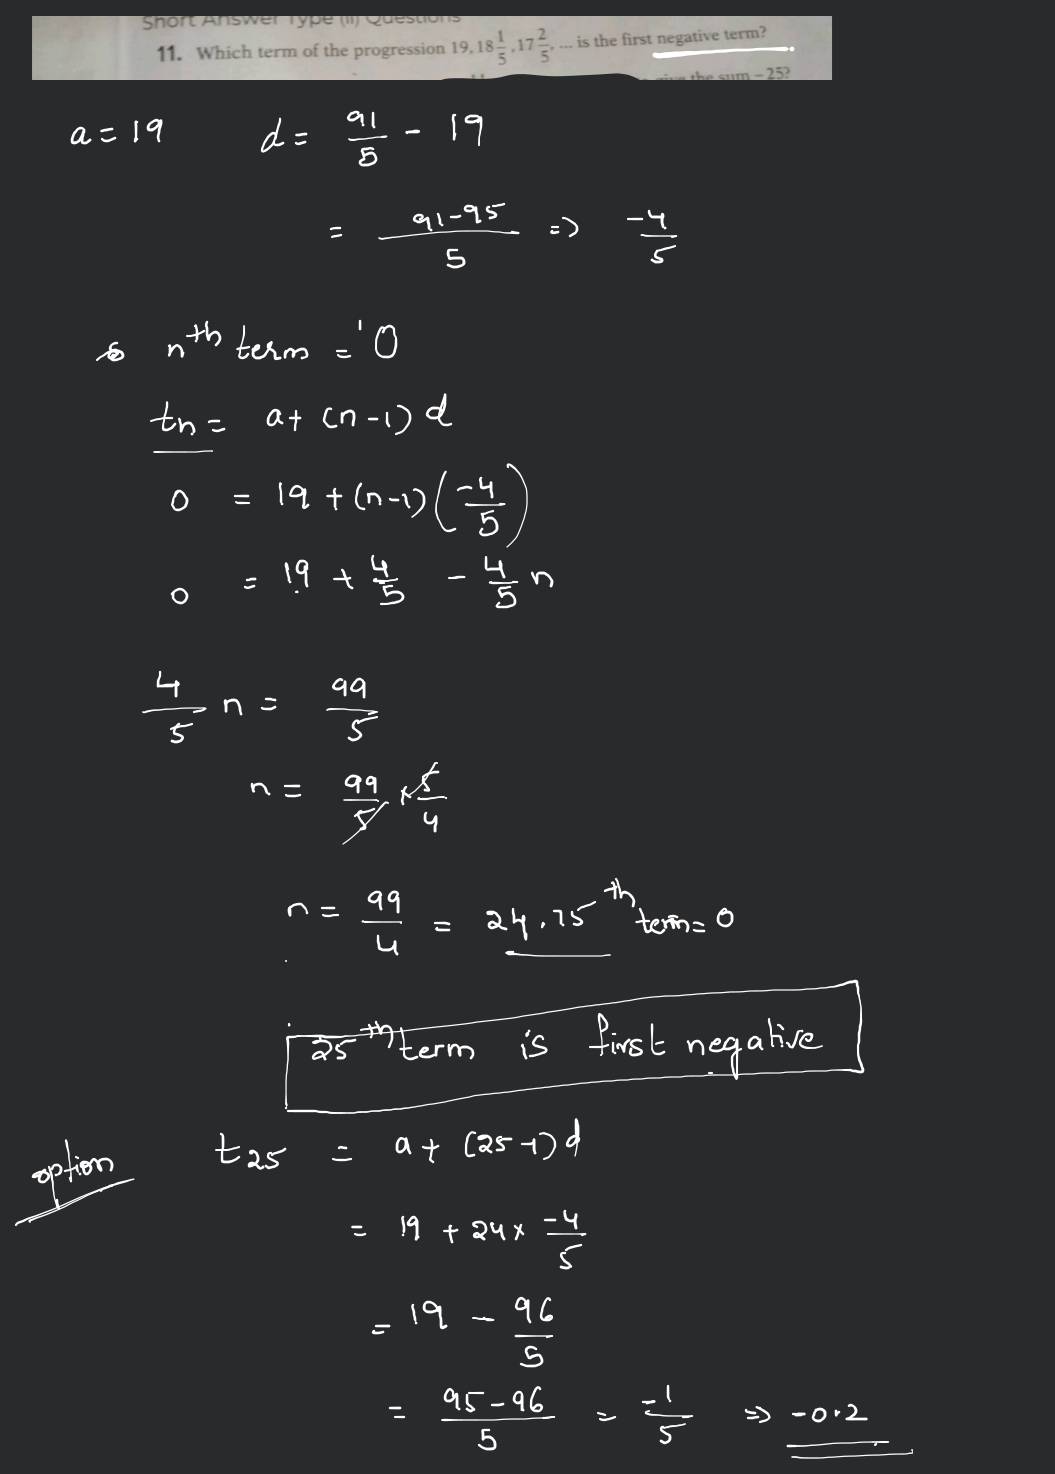 Short Answer Type (II) Questions
11. Which term of the progression 19, 18 1/5, 17 2/5, ... is the first negative term?
give the sum – 25?
a = 19 d = 91/5 - 19
= (91-95)/5 => -4/5
nth term = 0
tn = a + (n-1) d
0 = 19 + (n-1) (-4/5)
0 = 19 + 4/5 - 4/5 n
4/5 n = 99/5
n = 99/5 × 5/4
n = 99/4 = 24.75th term = 0
25th term is first negative
option t25 = a + (25-1) d
= 19 + 24 × -4/5
= 19 - 96/5
= (95-96)/5 = -1/5 => -0.2